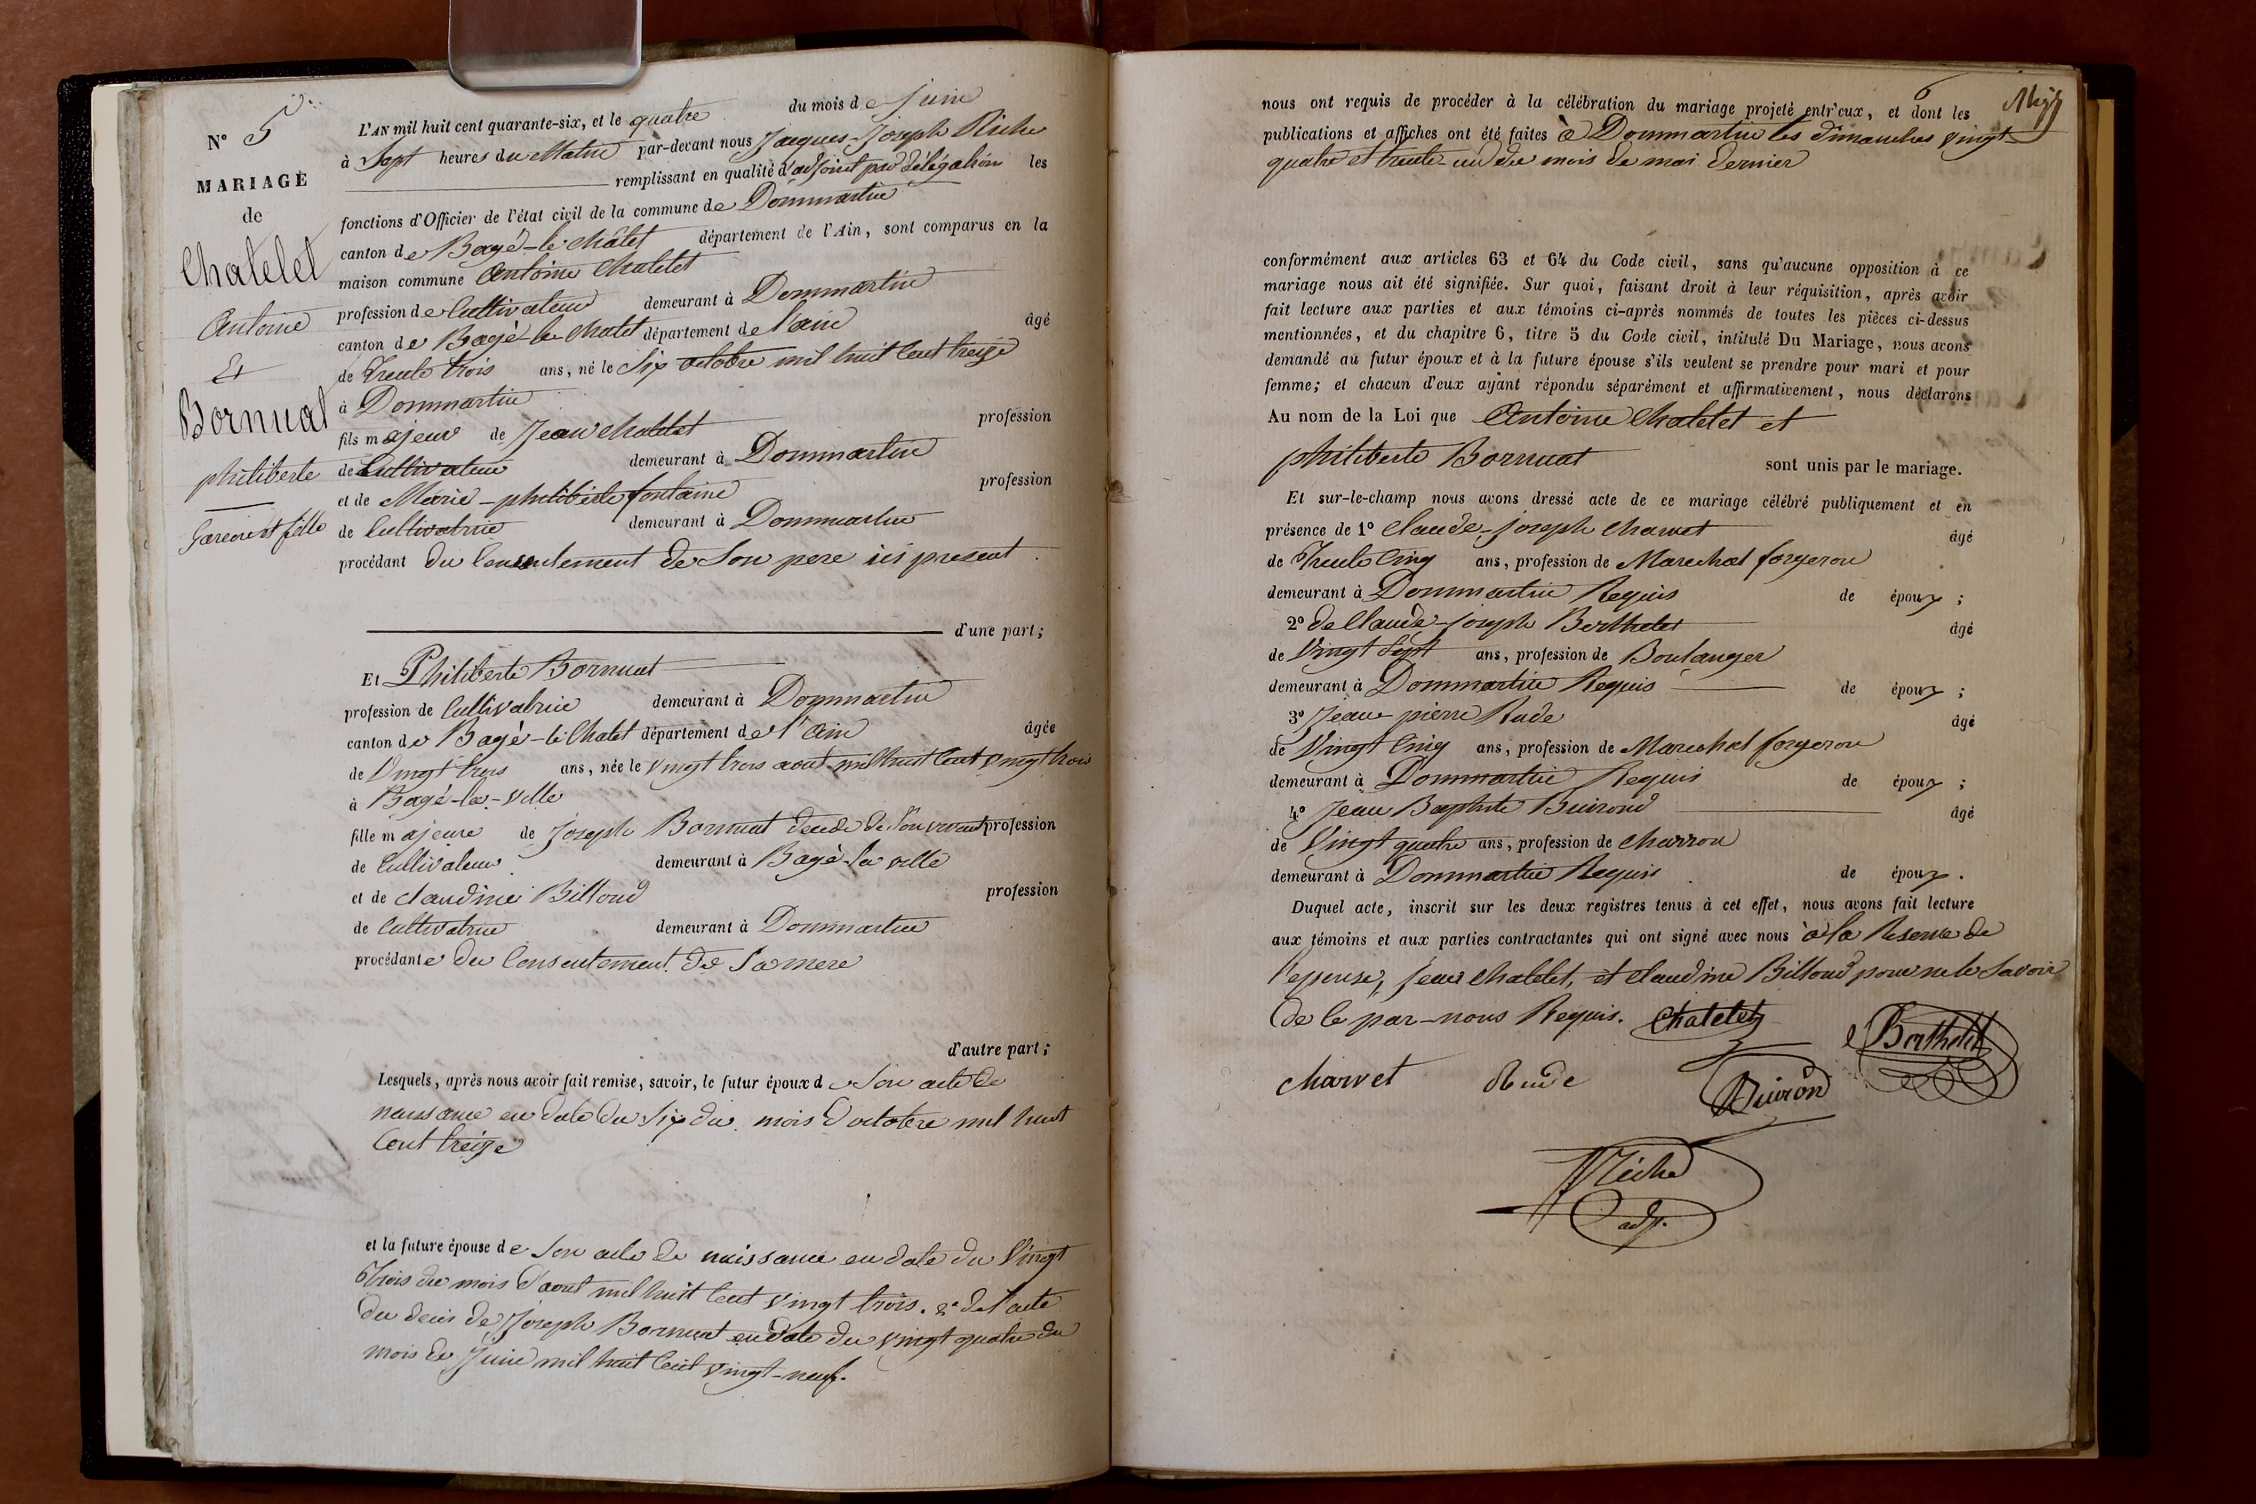 N° 5
MARIAGE
de
Chatelet
Antoine
Et
Bornuat
philiberte
Garcon et fille
L'AN mil huit cent quarante-six, et le quatre du mois de Juin
à Sept heures du Matin par-devant nous Jacques-Joseph Riche
remplissant en qualité d'adjoint par délégation les
fonctions d'Officier de l'état civil de la commune de Dommartin
canton de Bagé-le-châtel département de l'Ain, sont comparus en la
maison commune Antoine Chatelet
profession de Cultivateur demeurant à Dommartin
canton de Bagé-le-Chatel département de l'ain âgé
de Trente trois ans, né le Six octobre mil huit Cent treize
à Dommartin
fils majeur de Jean Chatelet profession
de Cultivateur demeurant à Dommartin
et de Marie-philiberte fontaine profession
de Cultivatrice demeurant à Dommartin
procédant du Consentement de Son pere ici present
d'une part;
Et Philiberte Bornuat
profession de Cultivatrice demeurant à Dommartin
canton de Bagé-le-Chatel département de l'ain âgée
de Vingt trois ans, née le vingt trois aout mil huit Cent vingt trois
à Bagé-la-Ville
fille majeure de Joseph Bornuat de Son vivant profession
de Cultivateur demeurant à Bagé-la ville
et de claudine Billoud profession
de Cultivatrice demeurant à Dommartin
procédante du Consentement de Sa mere
d'autre part;
Lesquels, après nous avoir fait remise, savoir, le futur époux de Son acte de
naissance en date du Six du mois d'octobre mil huit
Cent treize
et la future épouse de Son acte de naissance en date du Vingt
trois du mois d'aout mil huit Cent vingt trois. 2° de l'acte
du deces de Joseph Bornuat en date du vingt quatre du
mois de Juin mil huit Cent vingt-neuf.
6
nous ont requis de procéder à la célébration du mariage projeté entr'eux, et dont les
publications et affiches ont été faites à Dommartin les dimanches vingt-
quatre et trente-un du mois de mai dernier
conformément aux articles 63 et 64 du Code civil, sans qu'aucune opposition à ce
mariage nous ait été signifiée. Sur quoi, faisant droit à leur réquisition, après avoir
fait lecture aux parties et aux témoins ci-après nommés de toutes les pièces ci-dessus
mentionnées, et du chapitre 6, titre 5 du Code civil, intitulé Du Mariage, nous avons
demandé au futur époux et à la future épouse s'ils veulent se prendre pour mari et pour
femme; et chacun d'eux ayant répondu séparément et affirmativement, nous déclarons
Au nom de la Loi que Antoine Chatelet et
philiberte Bornuat sont unis par le mariage.
Et sur-le-champ nous avons dressé acte de ce mariage célébré publiquement et en
présence de 1° Claude-joseph Charvet âgé
de Trente Cinq ans, profession de Marechal forgeron
demeurant à Dommartin Requis de époux;
2° de Claude-joseph Berthelet âgé
de Vingt Sept ans, profession de Boulanger
demeurant à Dommartin Requis de époux;
3° Jean-pierre Rude âgé
de Vingt Cinq ans, profession de Marechal forgeron
demeurant à Dommartin Requis de époux;
4° Jean Baptiste Buirond âgé
de Vingt quatre ans, profession de charron
demeurant à Dommartin Requis de époux.
Duquel acte, inscrit sur les deux registres tenus à cet effet, nous avons fait lecture
aux témoins et aux parties contractantes qui ont signé avec nous à la Reserve de
l'epouse, Jean Chatelet, et Claudine Billoud pour ne le Savoir
de ce par-nous Requis. Chatelet
Berthelet
Charvet Rude Buiron
Riche
adj.